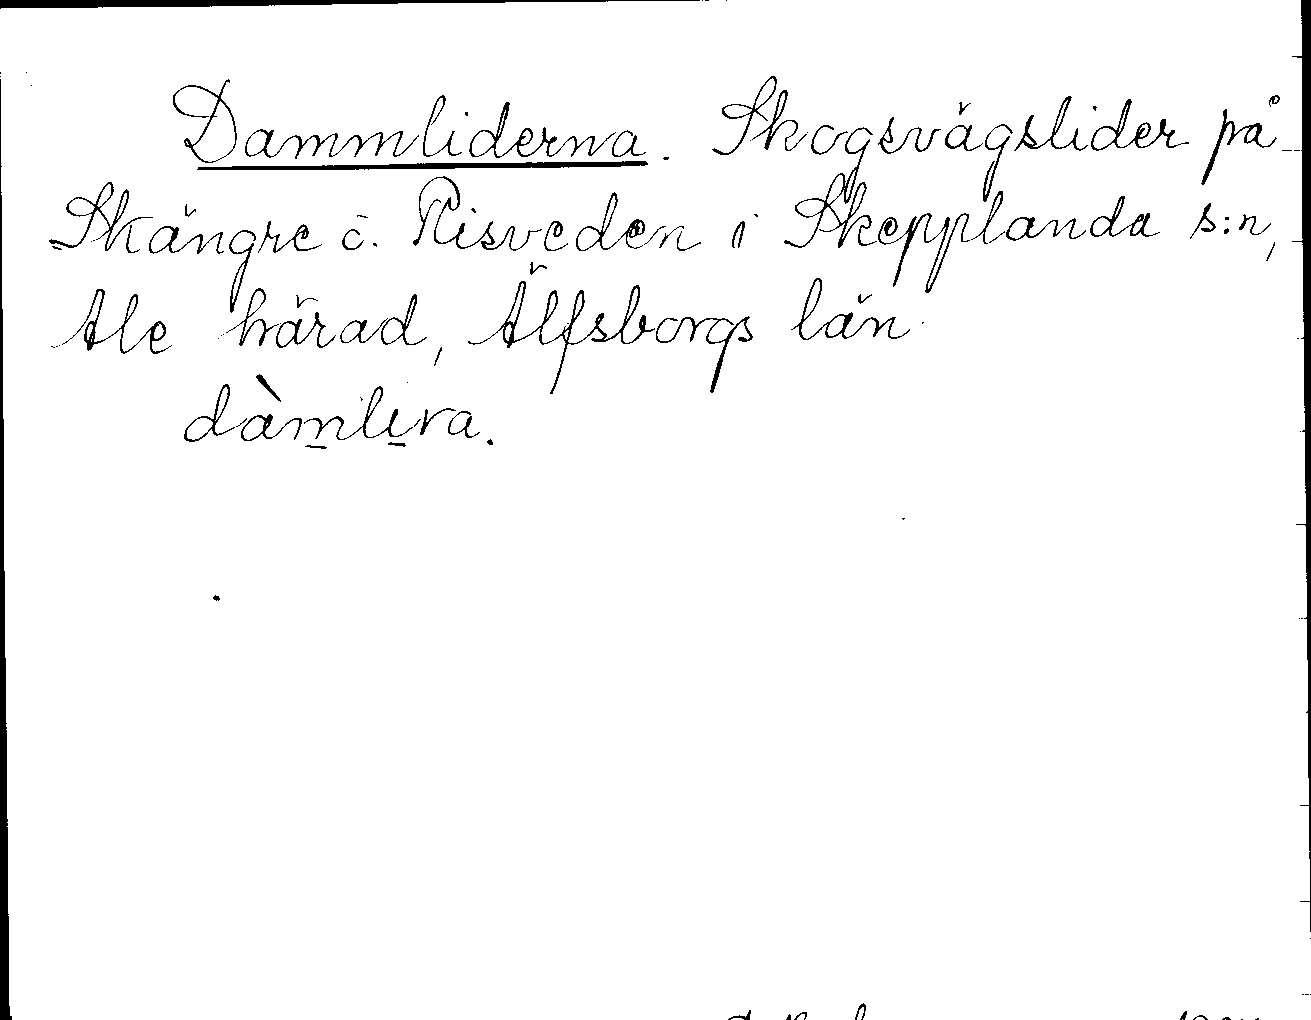 Dammliderna. Skogsvägslider på
Skängre ö. Risveden i Skepplanda s:n,
Ale härad, Älfsborgs län.
dàmlıra.